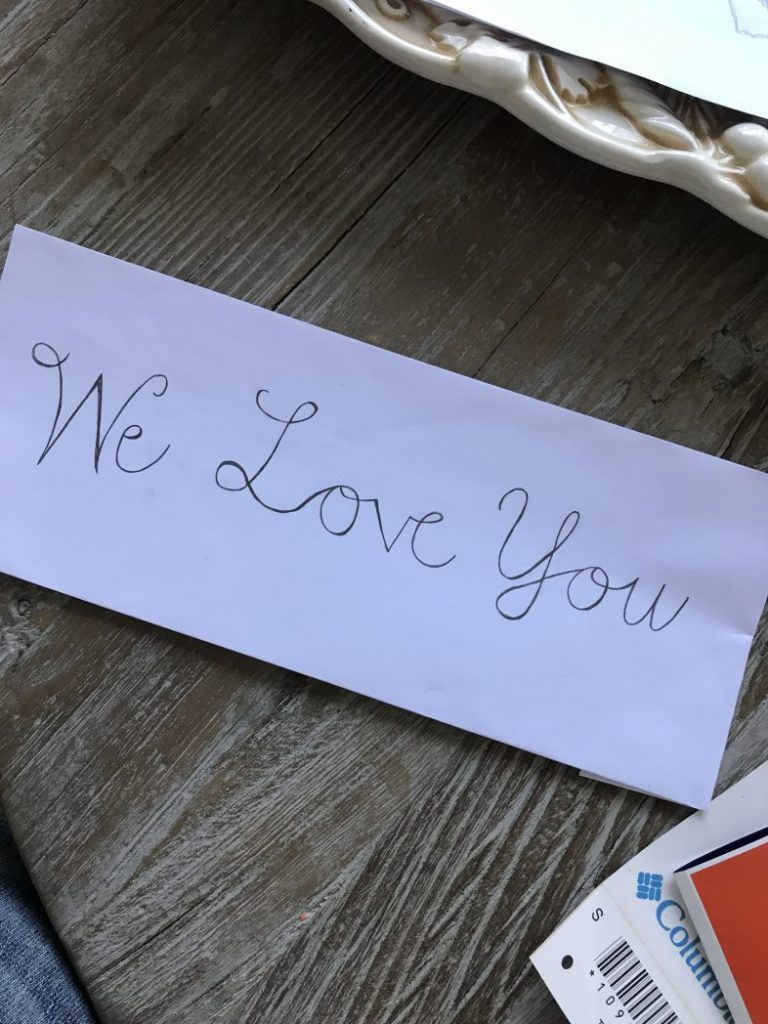 We Love You
S
Columbia
*109